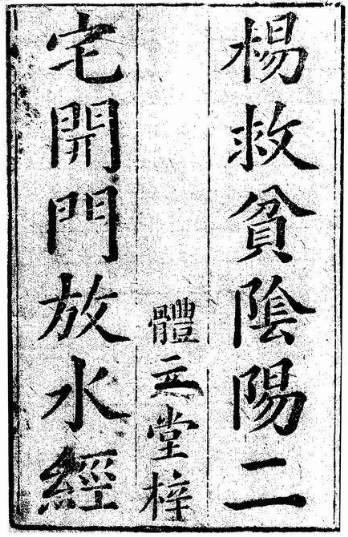 楊救貧陰陽二
體堂梓
宅開門放水經